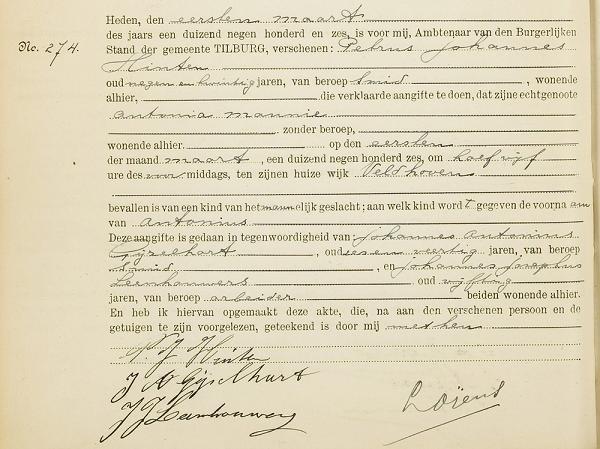 Heden, den eersten maart
des jaars een duizend negen honderd en zes, is voor mij, Ambtenaar van den Burgerlijken
No. 274. Stand der gemeente TILBURG, verschenen: Petrus Johannes
Hinten
oud negen en twintig jaren, van beroep smid, wonende
alhier, die verklaarde aangifte te doen, dat zijne echtgenoote
Antonia Mannie
zonder beroep,
wonende alhier op den eersten
der maand maart, een duizend negen honderd zes, om half vijf
ure des voormiddags, ten zijnen huize wijk Veldhoven
bevallen is van een kind van het mannelijk geslacht; aan welk kind wordt gegeven de voornaam
van Antonius
Deze aangifte is gedaan in tegenwoordigheid van: Johannes Antonius
Gijselhart, oud zeven veertig jaren, van beroep
smid, en Johannes Josephus
Leenhouwers oud vijftig
jaren, van beroep arbeider beiden wonende alhier.
En heb ik hiervan opgemaakt deze akte, die, na aan den verschenen persoon en de
getuigen te zijn voorgelezen, geteekend is door mij met hen
P. J. Hinten
J A Gijselhart
J J Leenhouwers